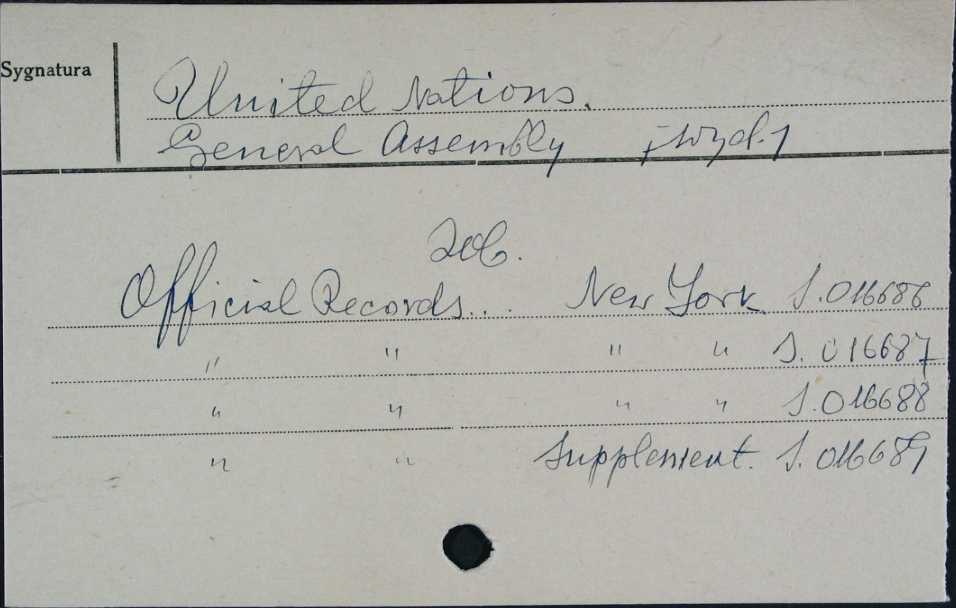 Sygnatura
United Nations.
General Assembly [wyd.]
Zob.
Official Records... New York S.016686
" " " " S.016687
" " " " S.016688
" " Supplement. S.016689